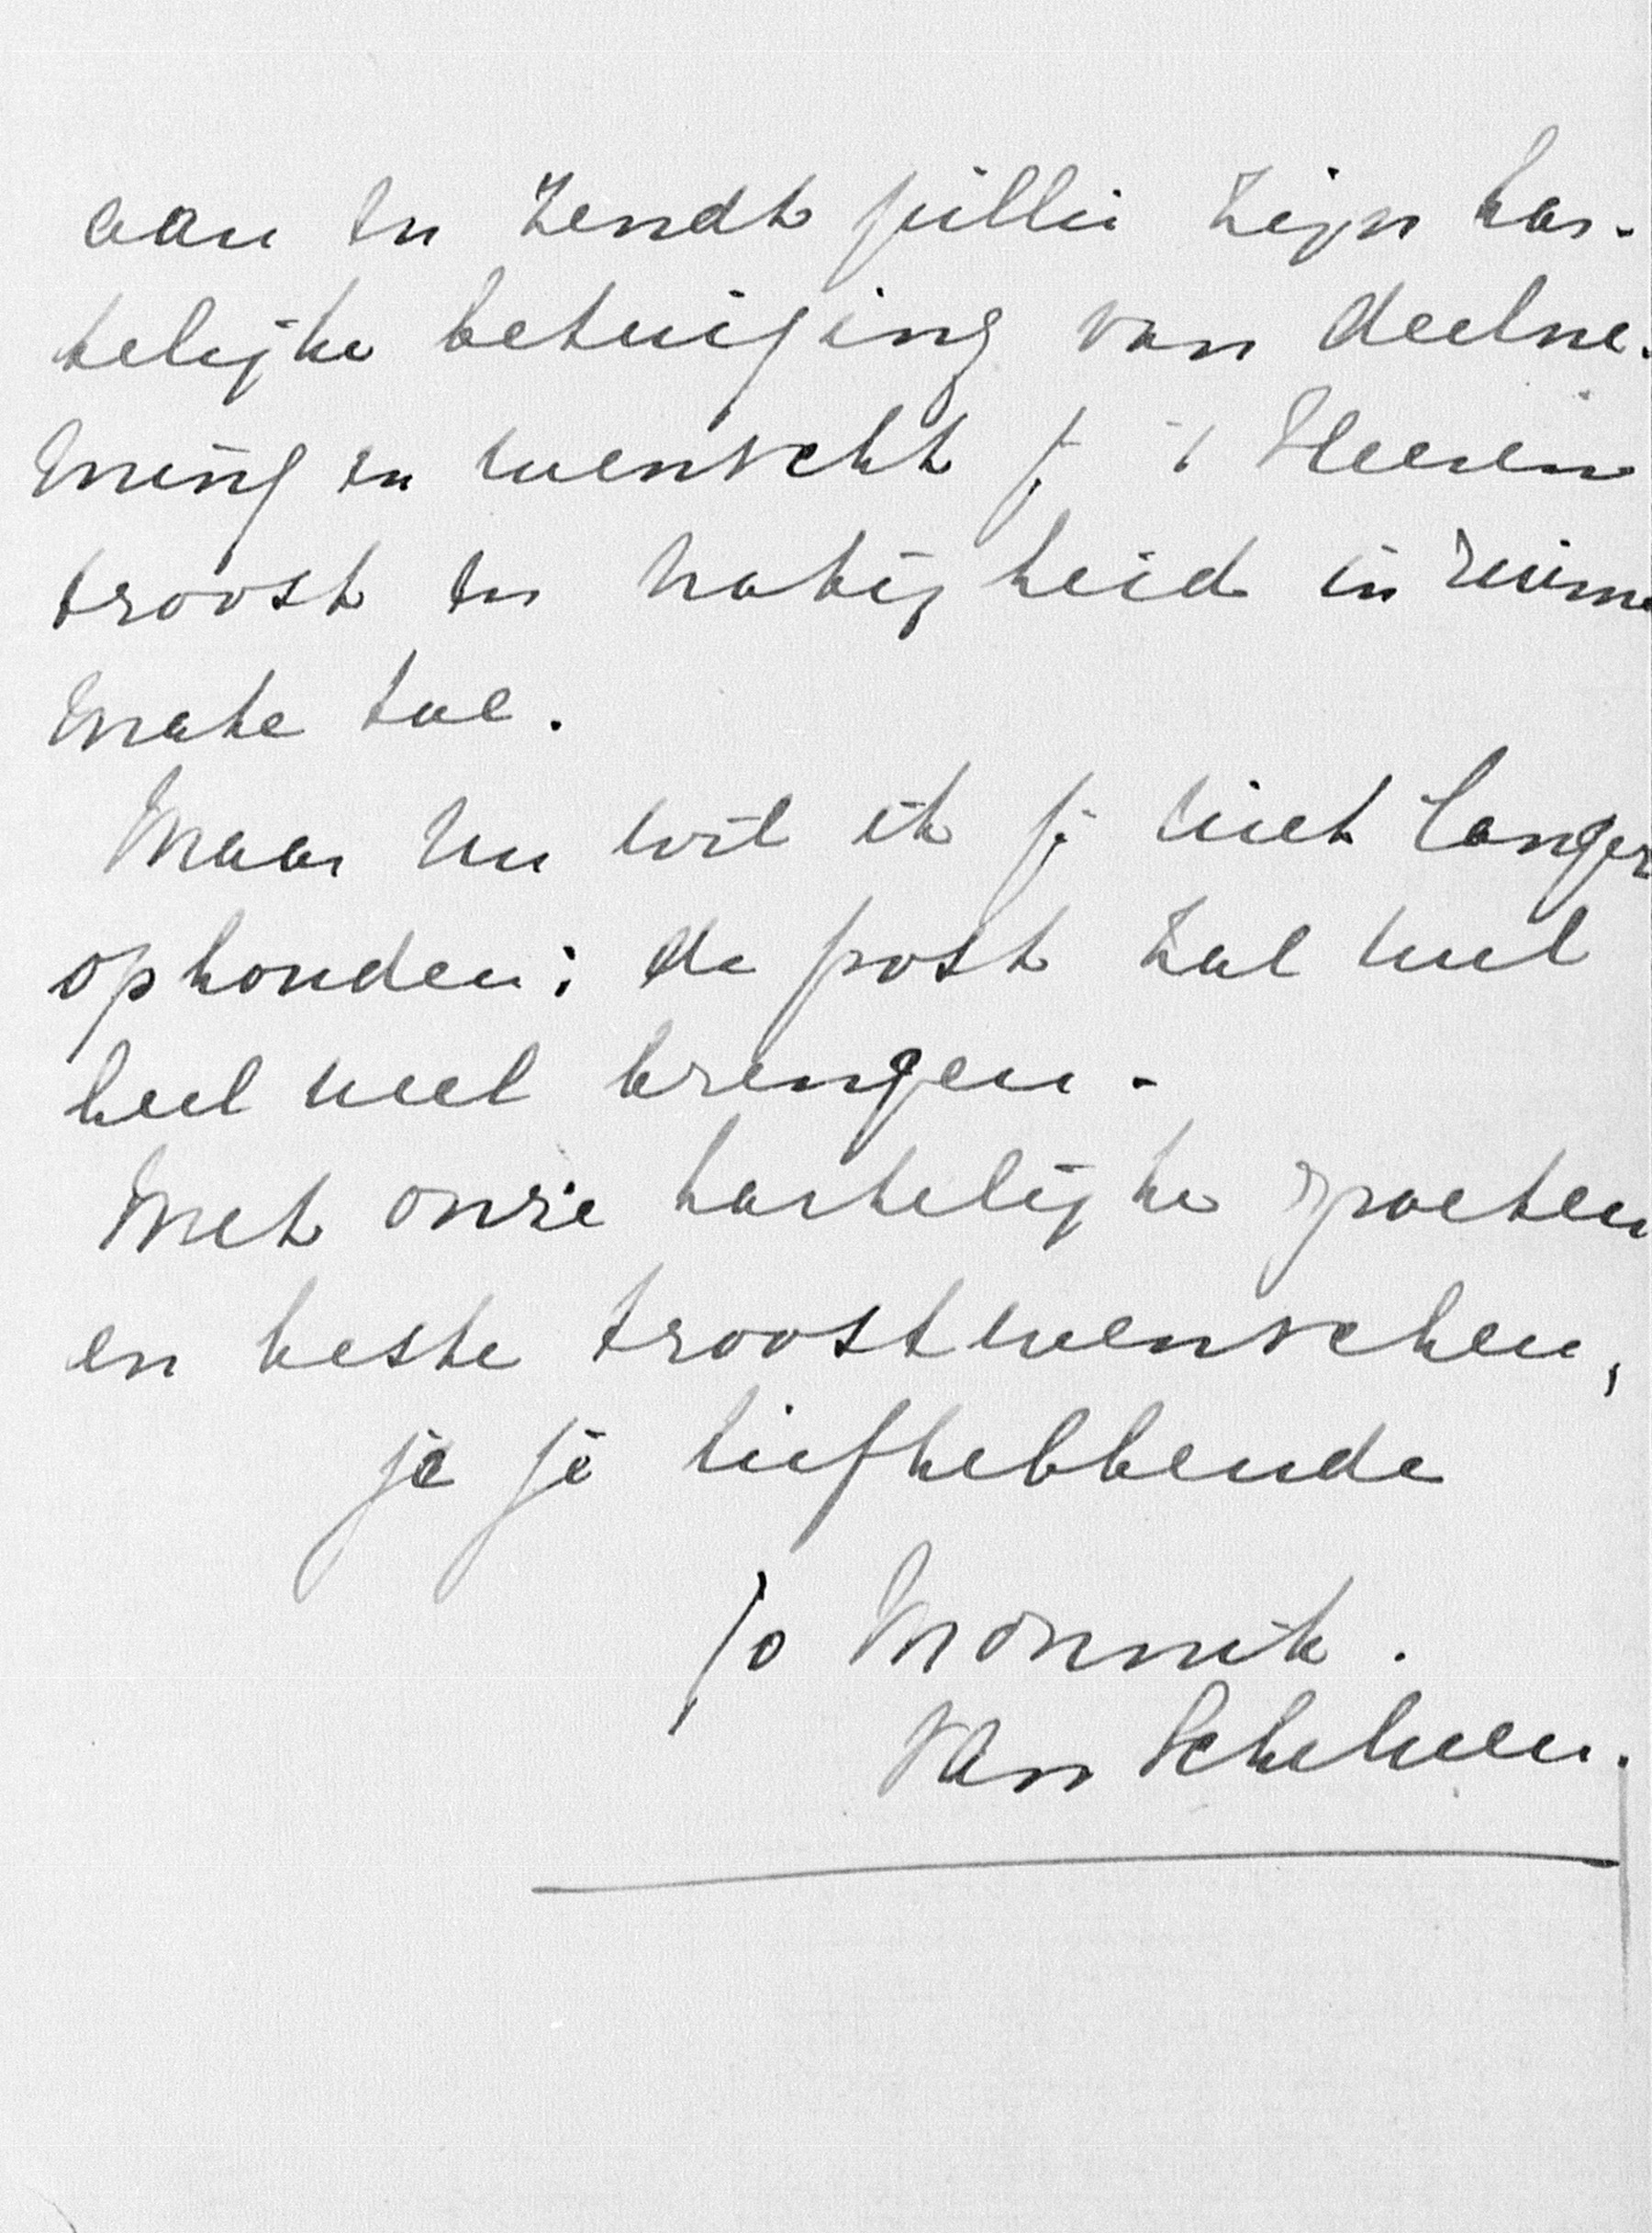 aan en zendt jullie zijn har-
telijke betuiging van deelne-
ming en wenscht je 's Heeren
troost en nabijheid in ruime
mate toe.
Maar nu wil ik je niet langer
ophouden; de post zal wel
heel veel brengen.
Met onze hartelijke groeten
en beste troostwenschen,
je je liefhebbende
Jo Monnik.
van